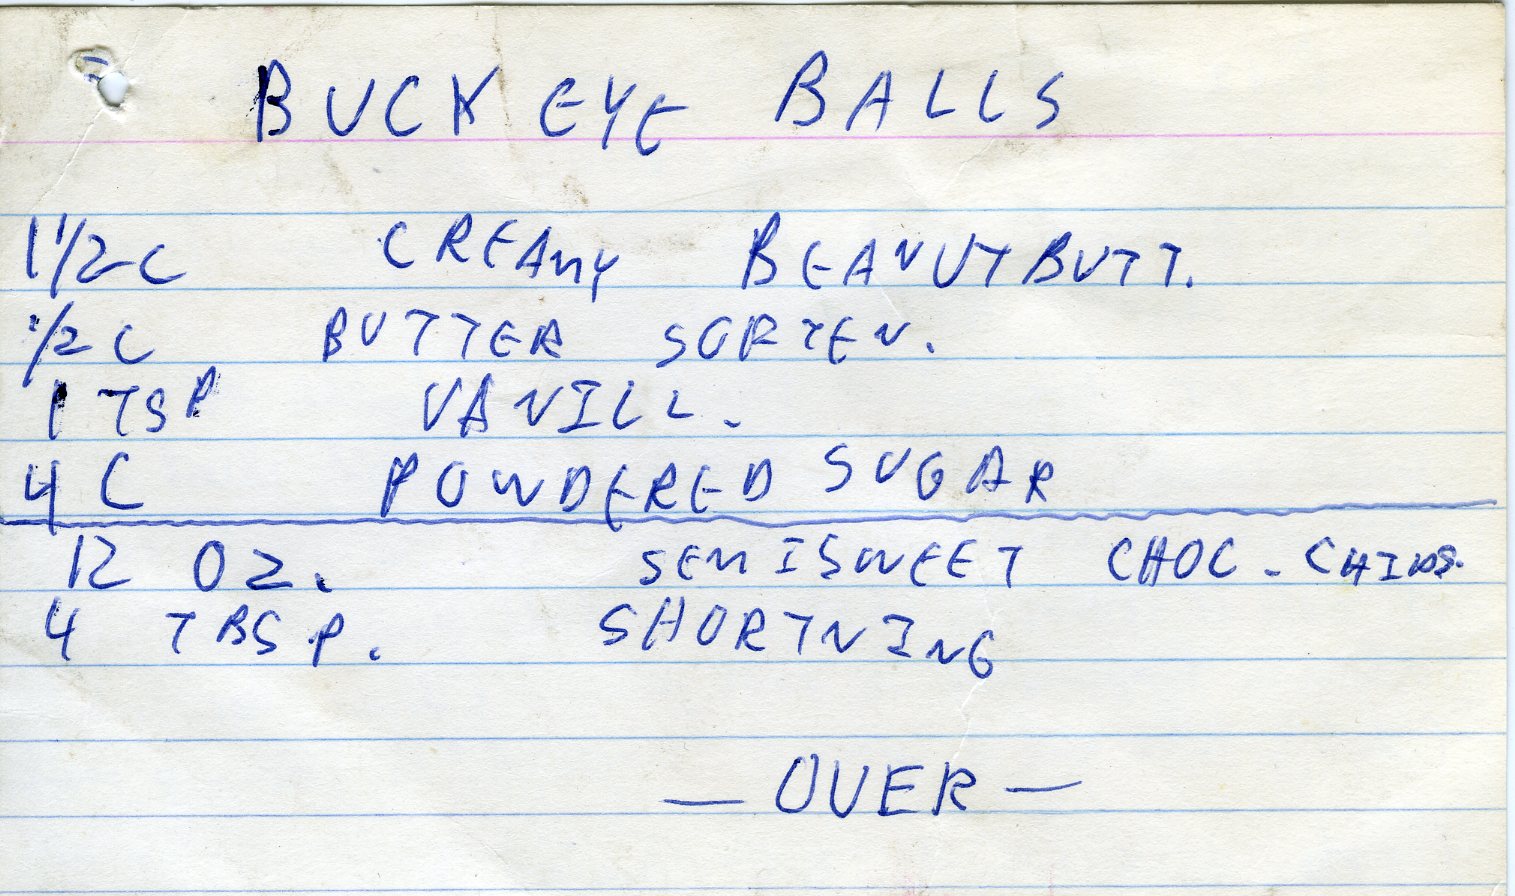 BUCKEYE BALLS
1 1/2 C CREAMY BEANUTBUTT.
1/2 C BUTTER SOFTEN.
1 TSP VANILL.
4 C POWDERED SUGAR
12 OZ. SEMISWEET CHOC. CHIPS.
4 TBSP. SHORTNING
— OVER —